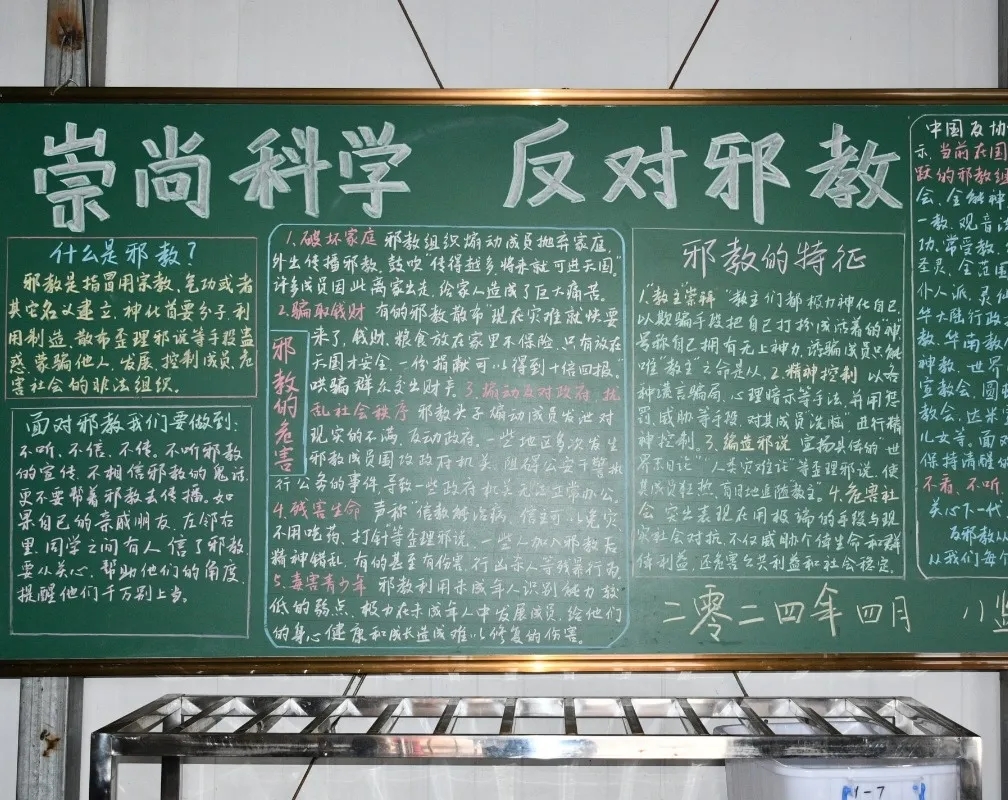 崇尚科学 反对邪教
什么是邪教?
邪教是指冒用宗教、气功或者
其它名义建立,神化首要分子,利
用制造、散布歪理邪说等手段蛊
惑、蒙骗他人,发展、控制成员,危
害社会的非法组织。
面对邪教我们要做到:
不听、不信、不传。不听邪教
的宣传,不相信邪教的鬼话,
更不要帮着邪教去传播。如
果自己的亲戚朋友、左邻右
里、同学之间有人信了邪教,
要从关心、帮助他们的角度,
提醒他们千万别上当。
邪教的危害
1.破坏家庭 邪教组织煽动成员抛弃家庭,
外出传播邪教,鼓吹“传得越多将来就可进天国”,
许多成员因此离家出走,给家人造成了巨大痛苦。
2.骗取钱财 有的邪教散布“现在灾难就快要
来了,钱财、粮食放在家里不保险,只有放在
天国才安全,一份捐献可以得到十倍回报,
哄骗群众交出财产。3.煽动反对政府,扰
乱社会秩序 邪教头子煽动成员发泄对
现实的不满,反动政府,一些地区多次发生
邪教成员围攻政府机关、阻碍公安干警执
行公务的事件,导致一些政府机关无法正常办公。
4.残害生命 声称“信教能治病,信主可以免灾,
不用吃药、打针”等歪理邪说,一些人加入邪教后
精神错乱,有的甚至有伤害、行凶杀人等残暴行为。
5.毒害青少年 邪教利用未成年人识别能力较
低的弱点,极力在未成年人中发展成员,给他们
的身心健康和成长造成难以修复的伤害。
邪教的特征
1.“教主”崇拜 “教主们都极力神化自己,
以欺骗手段把自己打扮成活着的“神”,
号称自己拥有无上神力,诱骗成员只能
唯“教主”之命是从。2.精神控制 以各
种谎言骗局、心理暗示等手法,并用惩
罚、威胁等手段,对其成员“洗脑”,进行精
神控制。3.编造邪说 宣扬具体的“世
界末日论”“人类灾难论”等歪理邪说,使
其成员狂热、盲目地追随教主。4.危害社
会 突出表现在用极端的手段与现
实社会对抗,不仅威胁个体生命和群
体利益,还危害公共利益和社会稳定。
二零二四年四月
中国反协
示,当前在国
跃的邪教组
会、全能神
一教、观音
功、常受教
圣灵、全范围
仆人派、灵仙
华大陆行政
教、华南教
神教、世界
宣教会、圆
教会、达米
儿女等。面
保持清醒的
不看、不听
关心下一代
反邪教从
从我们每
八
1-7